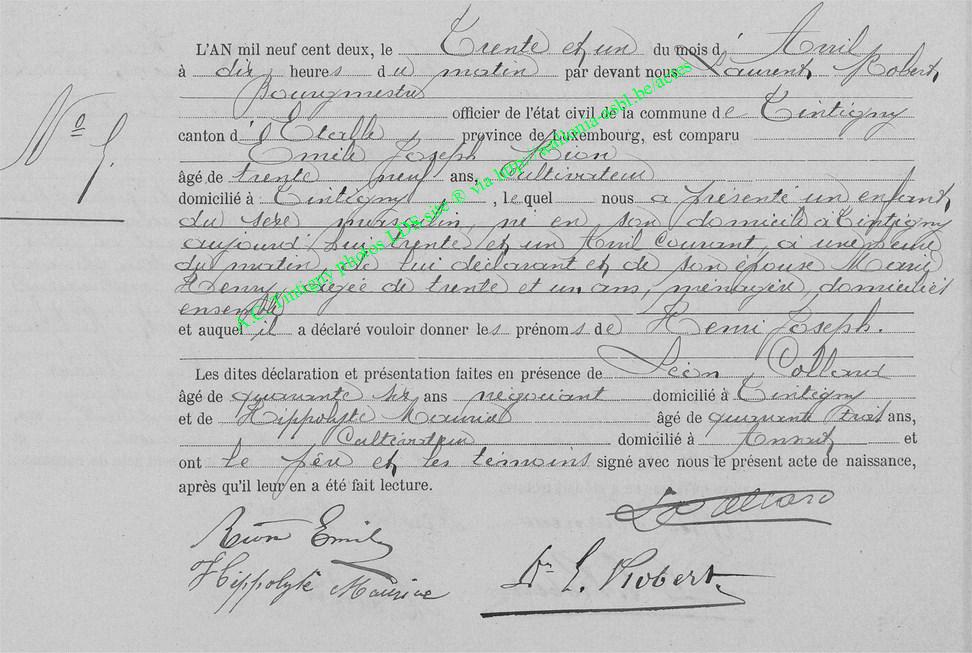 L'AN mil neuf cent deux, le Trente et un du mois d' Avril
à dix heures du matin par devant nous Laurent Robert,
Bourgmestre
officier de l'état civil de la commune de Tintigny
canton d'Etalle province de Luxembourg, est comparu
Emile Joseph Rion
âgé de trente neuf ans, cultivateur
domicilié à Tintigny, lequel nous a présenté un enfant
du sexe masculin, né en son domicile à Tintigny
aujourd'hui trente et un Avril courant, à une heure
du matin de lui déclarant et de son épouse Marie
Henry, âgée de trente et un ans, ménagère, domiciliés
ensemble
et auquel il a déclaré vouloir donner les prénoms de Henri Joseph.
Les dites déclaration et présentation faites en présence de Léon Collard
âgé de quarante six ans négociant domicilié à Tintigny
et de Hippolyte Maurice âgé de quarante trois ans,
Cultivateur domicilié à Ansart et
ont le père et les témoins signé avec nous le présent acte de naissance,
après qu'il leur en a été fait lecture.
N° 5.
L Collard
Rion Emile
Hippolyte Maurice
Dr L. Robert
A.C. Tintigny Photos LDS site ® via http://wallonia-asbl.be/actes